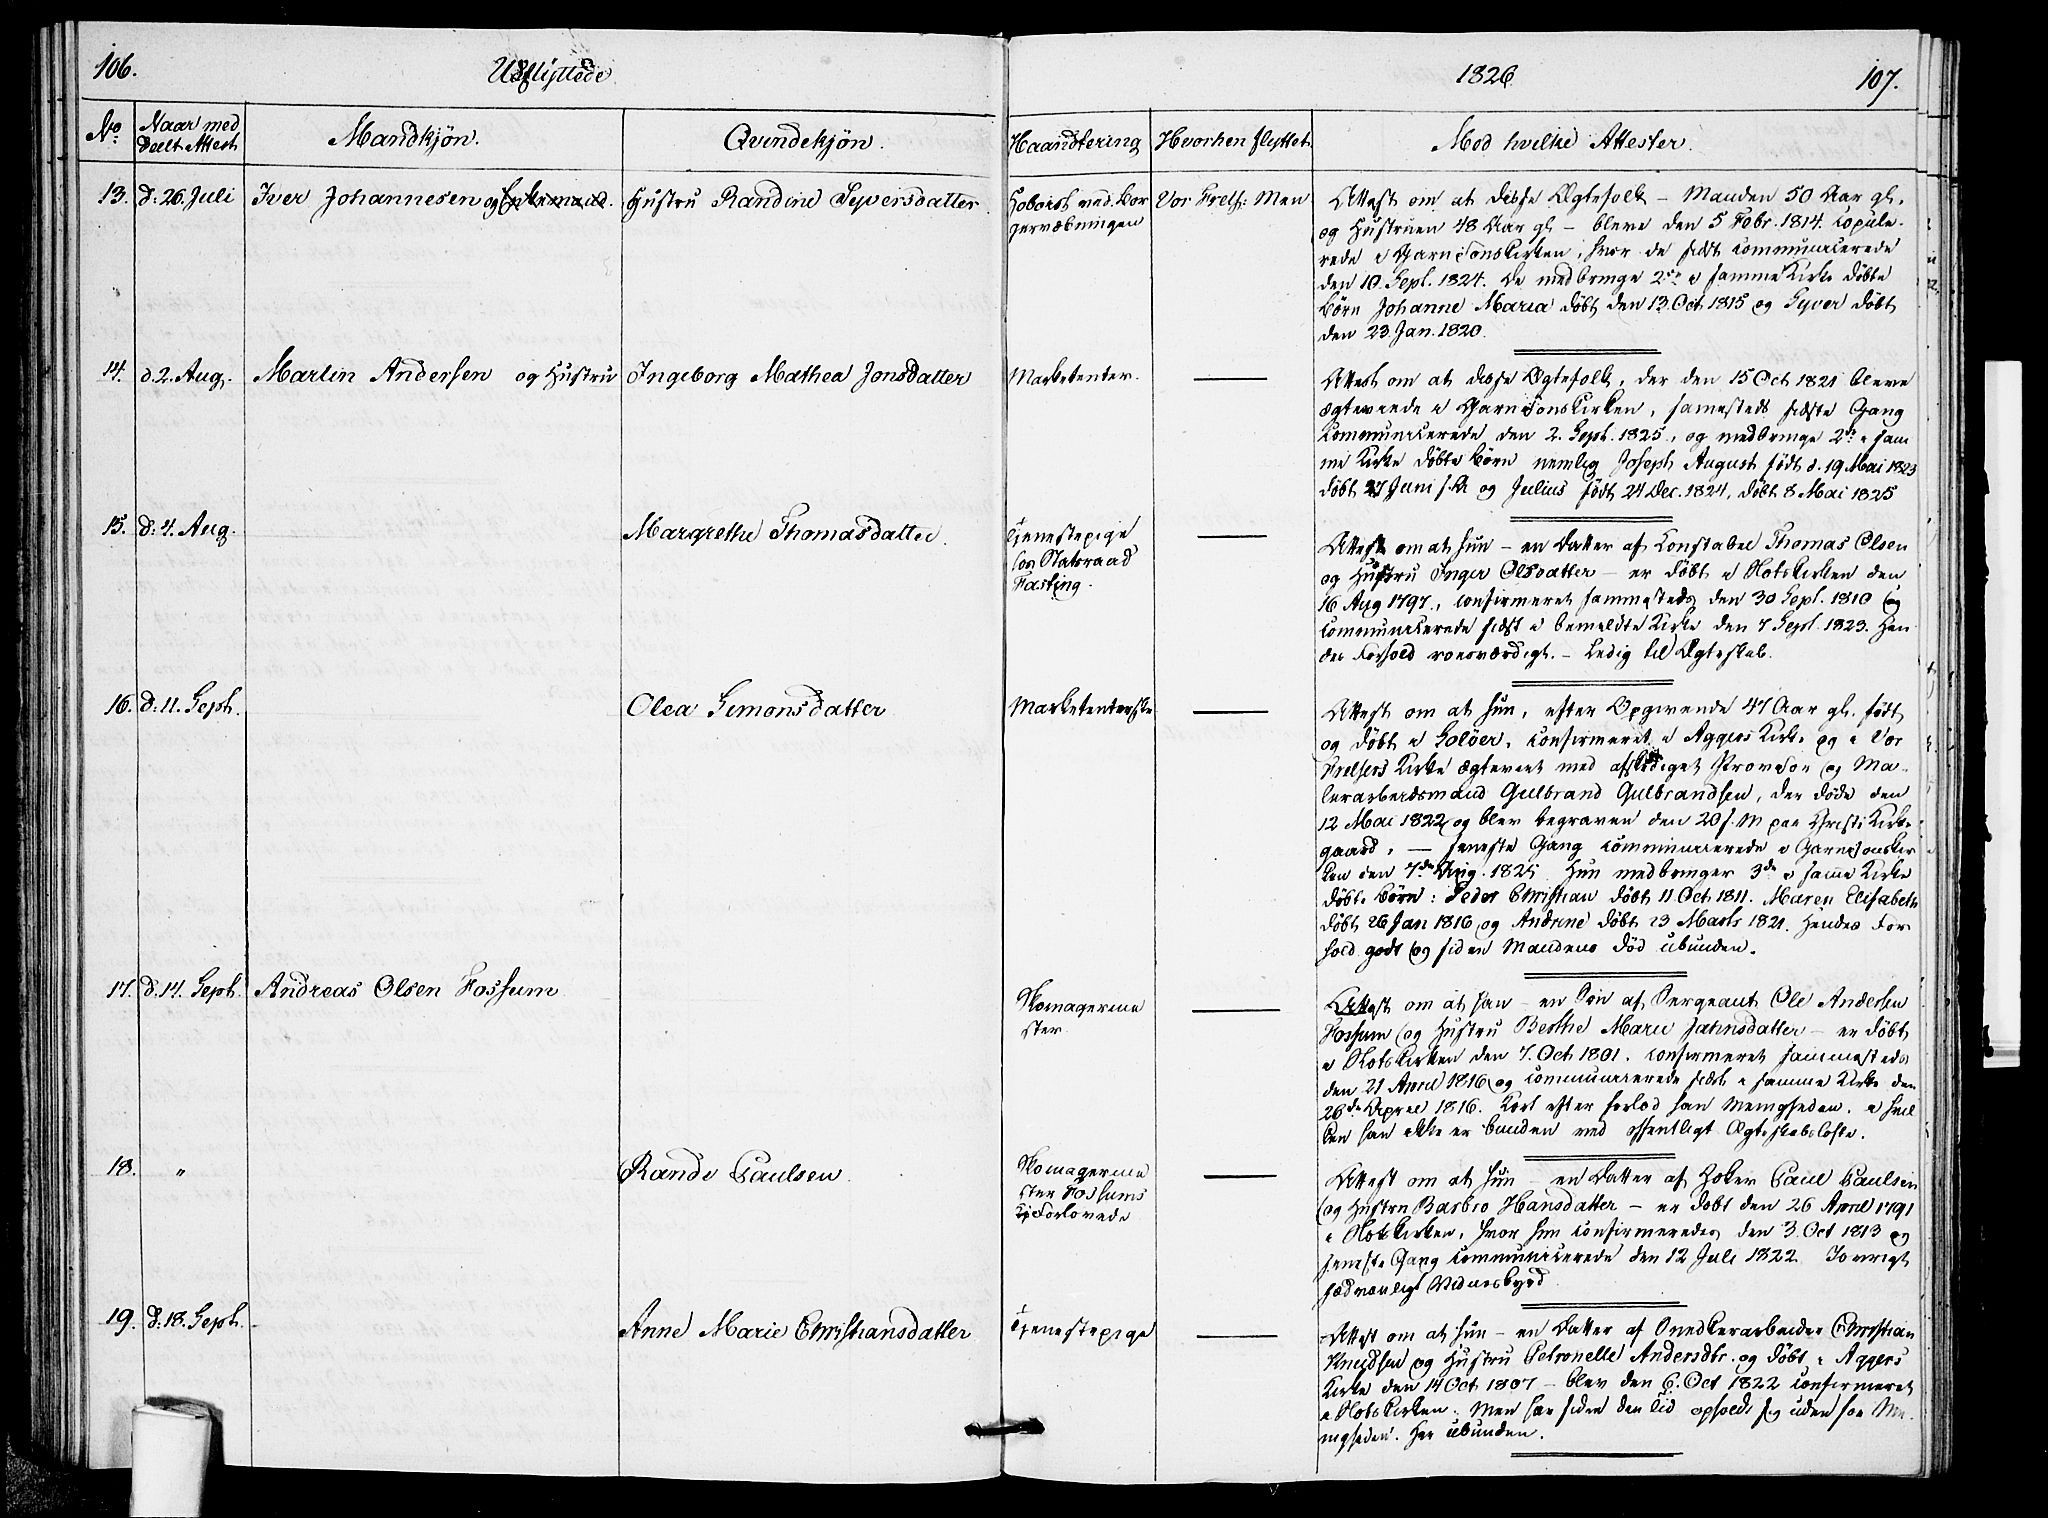 106.
Udflyttede
1826
107.
No.
Naar med
deelt Attest
Mandkjön.
Qvindekjön.
Haandtering
Hvorhen flyttet
Mod hvilke Attester.
13. d: 26. Juli Iver Johannesen og Hustru Randine Syversdatter Hoboist ved Bor Vor Frels: Men
gervæbningen
Attest om at disse Ægtefolk – Manden 50 Aar gl.
og Hustruen 48 Aar gl – bleve den 5 Febr. 1814. Copule-
rede i Garnisonskirken, hvor de sidst communicerede
den 10. Sept. 1824. De medbringe 2de i samme Kirke döbte
Börn Johanne Maria döbt den 13. Oct 1815 og Syver döbt
den 23. Jan. 1820.
14. d. 2. Aug. Martin Andersen og Hustru Ingeborg Mathea Jonsdatter Marketenter. —
Attest om at disse Ægtefolk, der den 15 Oct 1821 bleve
ægteviede i Garnisonskirken, samesteds sidste Gang
communicerede den 2. Sept. 1825, og medbringe 2de i sam
me Kirke döbte Börn nemlig Joseph August födt d. 19 Mai 1823
döbt 27 Juni s. A. og Julius födt 24 Dec. 1824, döbt 8 Mai 1825
15. d: 4. Aug. Margrethe Thomasdatter. Tjenestepige —
hos Statsraad
Fasting.
Attest om at hun – en Datter af Constabel Thomas Olsen
og Hustru Inger Olsdatter – er döbt i Slotskirken den
16 Aug 1797, confirmeret sammesteds den 30 Sept. 1810 og
communicerede sidst i bemeldte Kirke den 7 Sept. 1823. Hen
des Forhold roesværdigt. – Ledig til Ægteskab.
16. d: 11. Sept. Olea Simonsdatter Marketenterske —
Attest om at hun, efter Opgivende 47 Aar gl. födt
og döbt i Solöer, confirmeret i Aggers Kirke og i Vor
Frelsers Kirke ægteviet med afskediget og Ma-
lerarbeidsmand Gulbrand Gulbrandsen, der döde den
12 Mai 1822 og blev begraven den 20 s. M paa Christi Kirke-
gaard, – seneste Gang communicerede i Garnisonskir
ken den 7de Aug. 1825. Hun medbringer 3de i samme Kirke
döbte Börn: Peder Christian döbt 11 Oct 1811. Maren Elisabeth
döbt 26 Jan 1816 og Andrine döbt 23 Marts 1821. Hendes For
hold godt og siden Mandens Död ubunden.
17. d. 14. Sept. Andreas Olsen Fossum Skomagerme —
ster
Attest om at han – en Sön af Sergeant Ole Andersen
Fossum og Hustru Berthe Marie – er döbt
i Slotskirken den 7. Oct 1801. confirmeret sammesteds
den 21 April 1816 og communicerede sidst i samme Kirke den
26de April 1816. Kort efter forlod han Menigheden, i hvil
ken han ikke er bunden ved offentligt Ægteskabslöfte.
18. " Rande Paulsen. Skomagerme —
ster Fossums
Forlovede
Attest om at hun – en Datter af Höker Paul Paulsen
og Hustru Barbro Hansdatter – er döbt den 26 April 1791
i Slotskirken, hvor hun confirmeredes den 3 Oct 1813 og
seneste Gang communicerede den 12 Juli 1822. Iövrigt
sædvanligt Vidnesbyrd.
19. d: 18. Sept. Anne Marie Christiansdatter Tjenestepige —
Attest om at hun – en Datter af Snedkerarbeider Christian
Knudsen og Hustru Petronelle Andersdtr. og döbt i Aggers
Kirke den 14 Oct 1807 – blev den 6. Oct 1822 confirmeret
i Slotskirken. Men har siden den Tid opholdt sig uden for Me-
nigheden. Her ubunden.